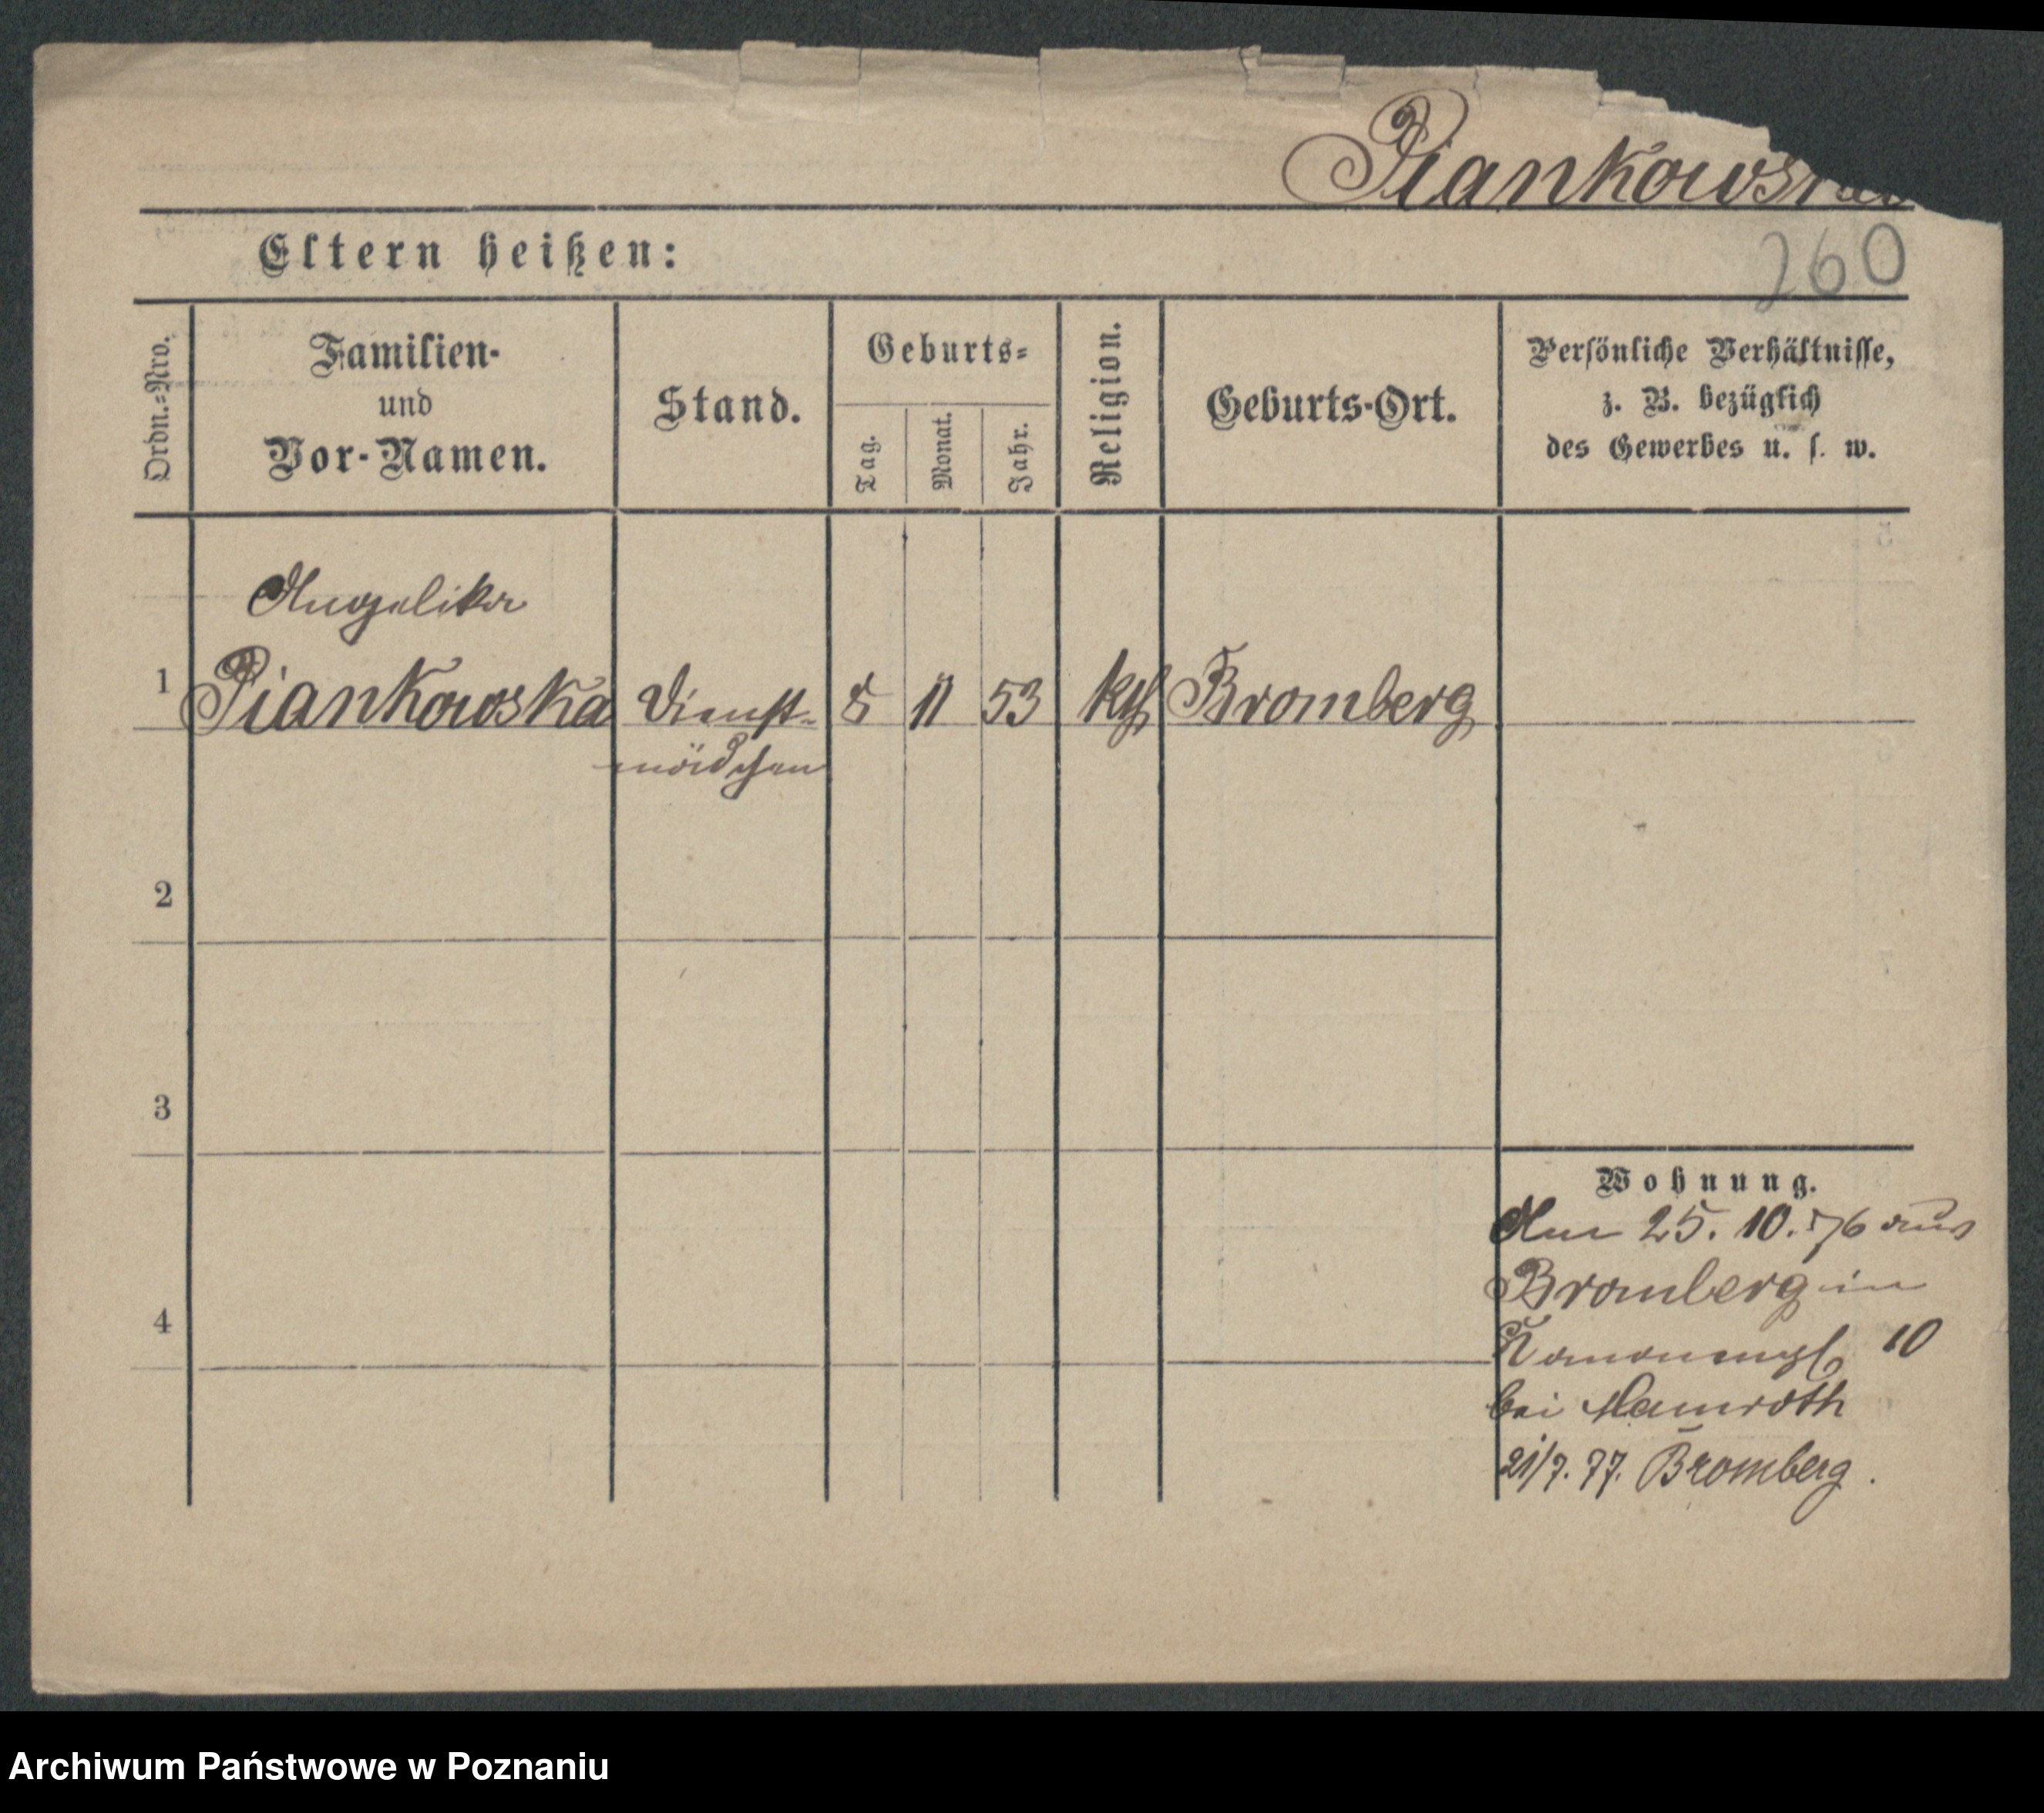 Piankowska
Eltern heißen:
260
Ordn.=Nro.
Familien-
und
Vor-Namen.
Stand.
Geburts=
Tag.
Monat.
Jahr.
Religion.
Geburts-Ort.
Persönliche Verhältnisse,
z. B. bezüglich
des Gewerbes u. s. w.
Angelika
1 Piankowska Dienst- 8 11 53 kth Bromberg
mädchen
2
3
4
Wohnung.
Am 25. 10. 76 aus
Bromberg in
10
bei Hamroth
21/7. 77. Bromberg.
Archiwum Państwowe w Poznaniu